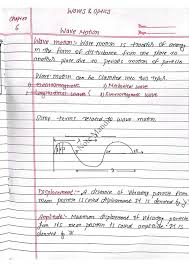 WAVES & OPTICS
Chapter
6
Wave Motion
Wave motion:- Wave motion is transfer of energy
in the form of disturbance from one place to
another place due to periodic motion of particle
Wave motion can be classified into two types
Mechanical wave
Electromagnetic wave
Some terms related to wave motion.
Displacement:- A distance of vibrating particle from
mean position is called displacement. It is denoted by
Amplitude:- Maximum displacement of vibrating particle
from its mean position is called amplitude. It is
denoted by